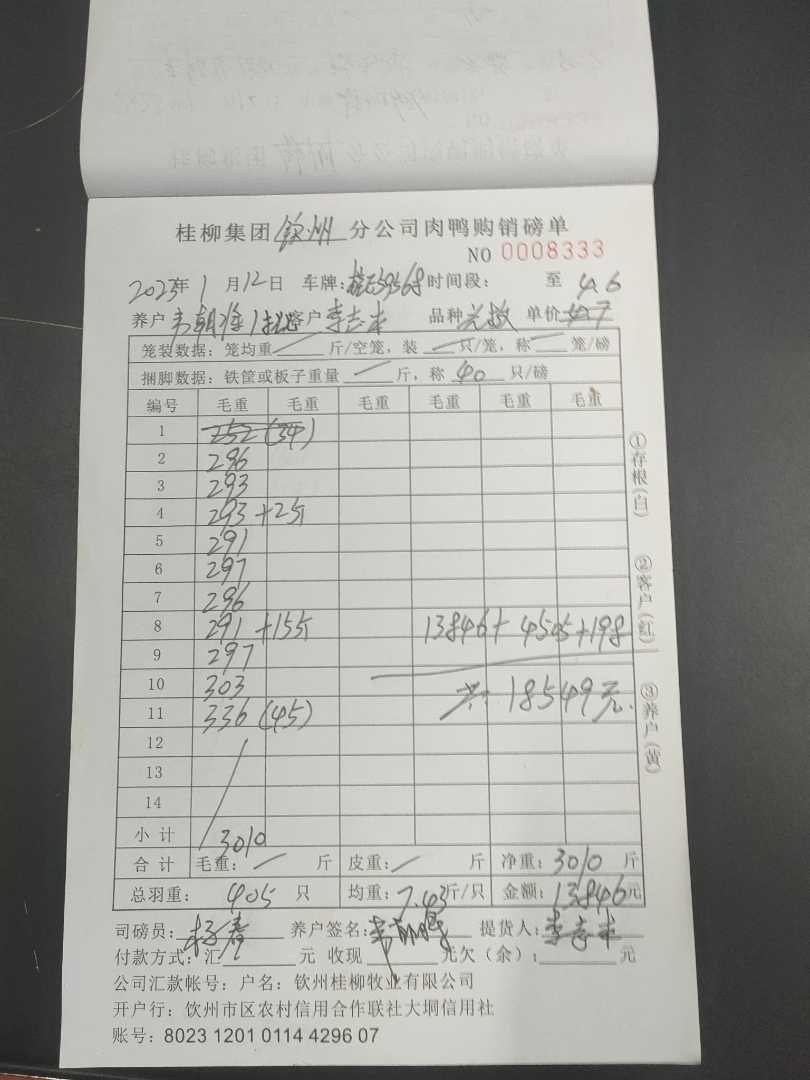 桂柳集团 钦州 分公司肉鸭购销磅单
NO 0008333
2023年 1 月 12 日 车牌: 59368 时间段: 至 4.6
养户 韦朝 客户 李志 品种 单价 4.7
笼装数据: 笼均重 斤/空笼, 装 只/笼, 称 笼/磅
捆脚数据: 铁筐或板子重量 斤, 称 40 只/磅
编号 毛重 毛重 毛重 毛重 毛重 毛重
1 252 (34)
2 296
3 293
4 293 +2斤
5 291
6 297
7 296
8 291 +15斤 13846+ 4505 +198
9 297
10 303 共: 18549元.
11 336 (45)
12
13
14
小计 3010
合计 毛重: 斤 皮重: 斤 净重: 3010 斤
总羽重: 405 只 均重: 7.43 斤/只 金额: 13846元
司磅员: 杨春 养户签名: 韦朝 提货人: 李志
付款方式: 汇 元 收现 元欠(余): 元
公司汇款帐号: 户名: 钦州桂柳牧业有限公司
开户行: 钦州市区农村信用合作联社大垌信用社
账号: 8023 1201 0114 4296 07
①存根(白)
②客户(红)
③养户(黄)